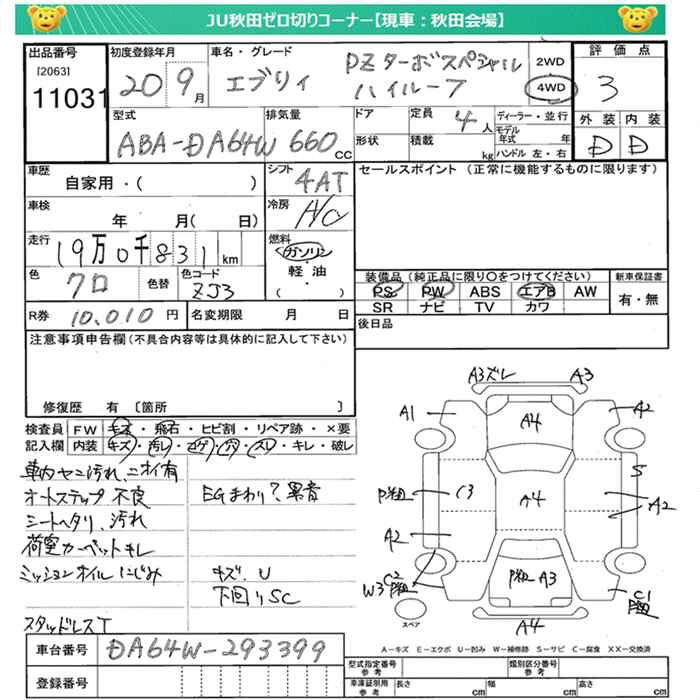 JU秋田ゼロ切りコーナー【現車：秋田会場】
出品番号 [2063] 11031
初度登録年月 20 9月
車名・グレード エブリィ PZターボスペシャル ハイルーフ
2WD
4WD
評価点 3
外装 内装
D D
型式 ABA-DA64W
排気量 660cc
ドア
形状
定員 4人
積載 kg
ディーラー・並行
モデル年式 年
ハンドル 左・右
車歴 自家用・( )
シフト 4AT
セールスポイント (正常に機能するものに限ります)
車検 年 月( 日)
冷房 A/C
走行 19万0千831km
燃料 ガソリン・軽油・( )
色 クロ
色替
色コード ZJ3
装備品 (純正品に限り○をつけてください)
PS PW ABS エアB AW
SR ナビ TV カワ
新車保証書 有・無
R券 10,010円
名変期限 月 日
後日品
注意事項申告欄(不具合内容等は具体的に記入して下さい)
修復歴 有 〔箇所 〕
検査員記入欄
FW キズ・飛石・ヒビ割・リペア跡・×要
内装 キズ・汚レ・コゲ・穴・スレ・キレ・破レ
車内ヤニ汚れ、ニオイ有
オートステップ 不良
シートヘタリ、汚れ
荷室カーペットキレ
ミッションオイルにじみ
スタッドレスT
EGまわり?異音
キズ、U
下回りSC
A3ズレ A3
A1 A4 A2
S
P粗 C3 A4 A2
A2
W3 C2 P粗
P粗 A3
C1 P粗
スペア
A4
A－キズ E－エクボ U－凹み W－補修跡 S－サビ C－腐食 XX－交換済
車台番号 DA64W-293399
登録番号
型式指定番号 参考
類別区分番号 参考
車庫証明用 参考
長さ cm
幅 cm
高さ cm